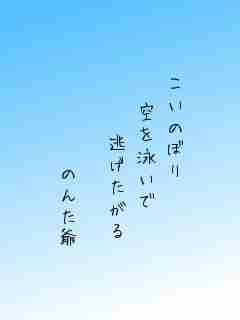 こいのぼり
空を泳いで
逃げたがる
のんた爺